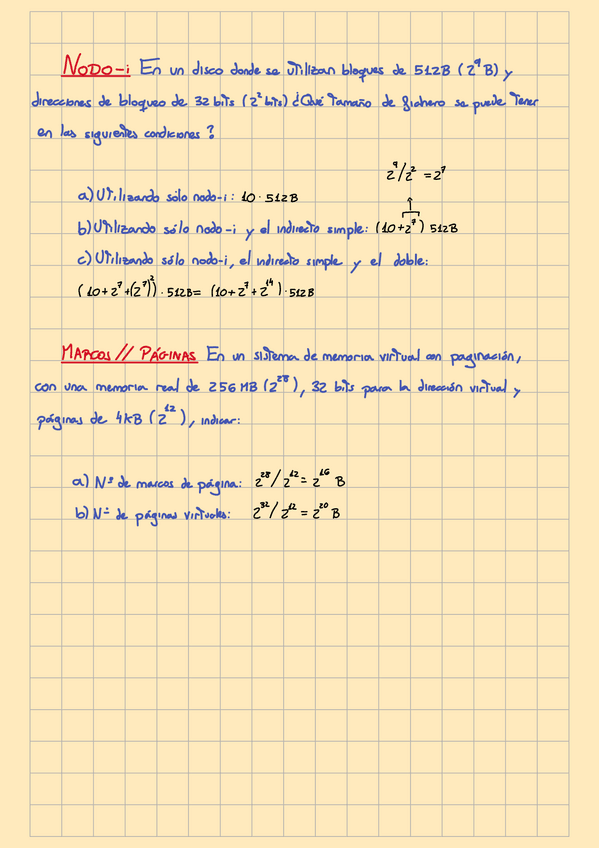 NODO-i En un disco donde se utilizan bloques de 512B (2⁹ B) y
direcciones de bloqueo de 32 bits (2² bits) ¿Qué tamaño de fichero se puede tener
en las siguientes condiciones?
2⁹/2² = 2⁷
a) Utilizando sólo nodo-i: 10 · 512B
↑
b) Utilizando sólo nodo-i y el indirecto simple: (10+2⁷) 512B
c) Utilizando sólo nodo-i, el indirecto simple y el doble:
(10+2⁷+(2⁷)²) · 512B = (10+2⁷+2¹⁴) · 512B
MARCOS // PÁGINAS En un sistema de memoria virtual con paginación,
con una memoria real de 256 MB (2²⁸), 32 bits para la dirección virtual y
páginas de 4kB (2¹²), indicar:
a) Nº de marcos de página: 2²⁸ / 2¹² = 2¹⁶ B
b) Nº de páginas virtuales: 2³² / 2¹² = 2²⁰ B